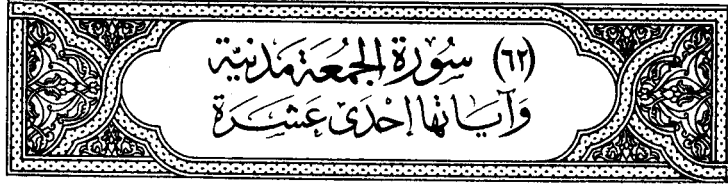 (٦٢) سُورَة الجُمُعَة مَدَنِيَّة
وَآيَاتُهَا إِحْدَى عَشَرَة